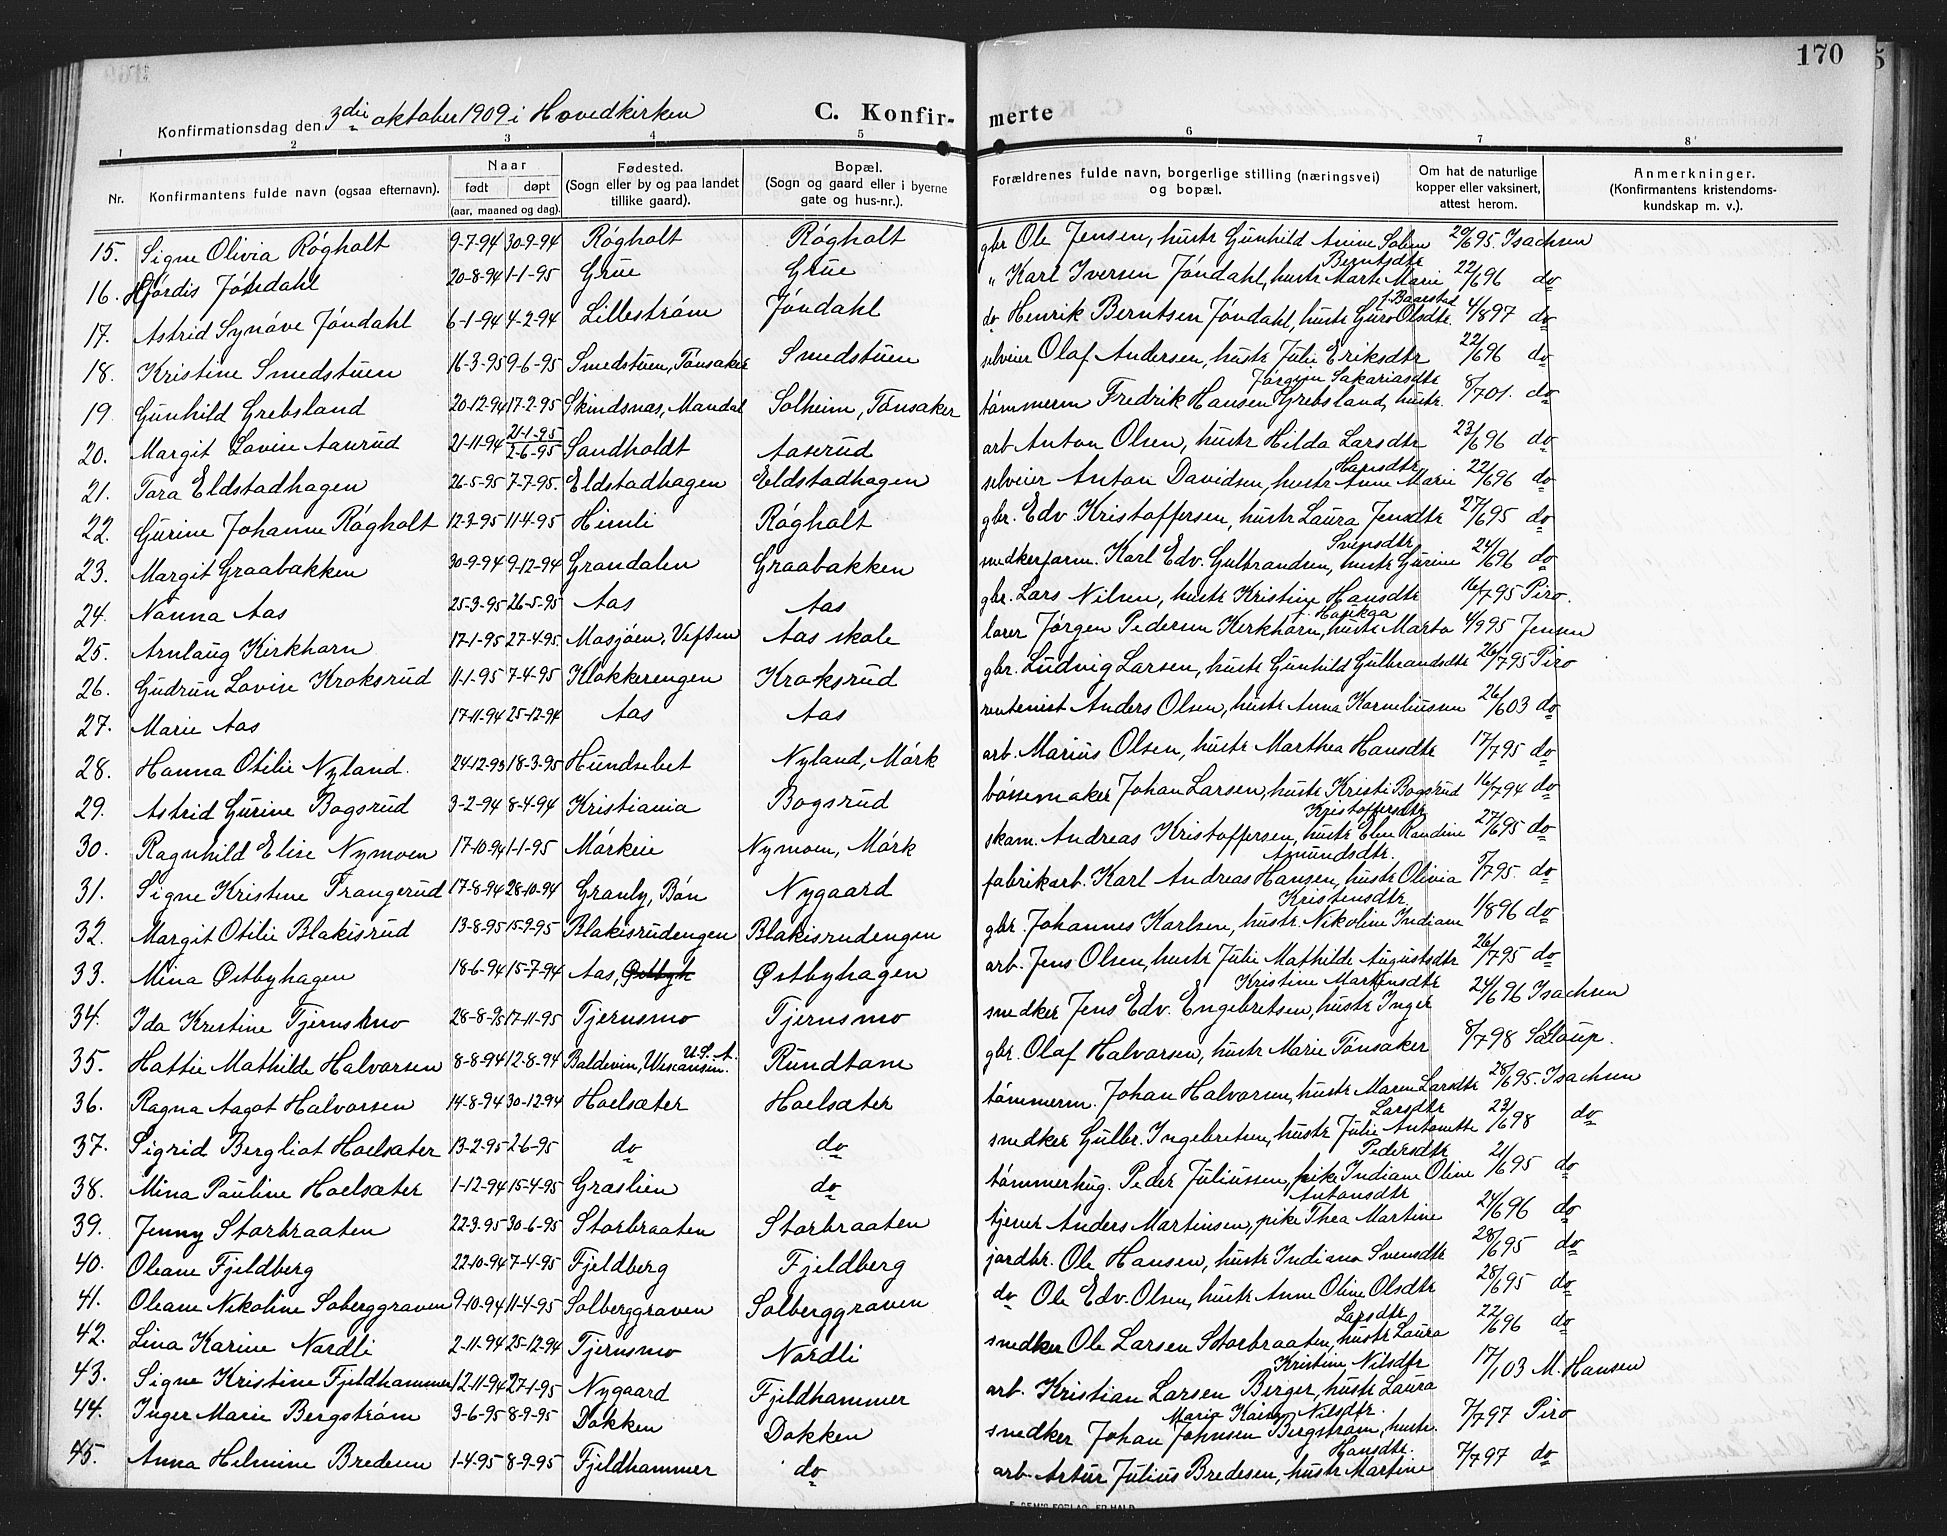 170
Konfirmationsdag den 3die oktober 1909 i Hovedkirken
C. Konfirmerte
1 2 3 4 5 6 7 8
Nr. Konfirmantens fulde navn (ogsaa efternavn). Naar født døpt (aar, maaned og dag). Fødested. (Sogn eller by og paa landet tillike gaard). Bopæl. (Sogn og gaard eller i byerne gate og hus-nr.). Forældrenes fulde navn, borgerlige stilling (næringsvei) og bopæl. Om hat de naturlige kopper eller vaksinert, attest herom. Anmerkninger. (Konfirmantens kristendomskundskap m. v.).
15. Signe Olivia Røgholt 9-7-94 30-9-94 Røgholt Røgholt gbr Ole Jensen, hustr Gunhild Anine 20/6 95. Isachsen
16. Hjørdis Jøndahl 20-8-94 1-1-95 Grue Grue " Karl Iversen Jøndahl, hustr Marte Marie Berntsdtr 22/6 96 do
17. Astrid Synøve Jøndahl 6-1-94 4-2-94 Lillestrøm Jøndahl do Henrik Berntsen Jøndahl, hustr Guro Olsdtr. f. Baarstad 4/8 97 do
18. Kristine Smedstuen 16-3-95 9-6-95 Smedstuen, Tønsaker Smedstuen selveier Olaf Andersen, hustr Julie Eriksdtr 22/6 96 do
19. Gunhild Grebsland 20-12-94 17-2-95 Skindsnas, Mandal Solheim, Tønsaker tømmerm Fredrik Hansen Grebsland, hustr. Jørgine Sakariasdtr 8/7 01. do
20. Margit Lovise Aaserud 21-11-94 21-1-95 2-6-95 Sandholdt Aaserud arb Anton Olsen, hustr Hilda Larsdtr 23/6 96 do
21. Tora Eldstadhagen 26-5-95 7-7-95. Eldstadhagen Eldstadhagen selveier Anton Davidsen, hustr Anne Marie Hansdtr 22/6 96 do
22. Gurine Johanne Røgholt 12-3-95 11-4-95 Himli Røgholt gbr. Edv. Kristoffersen, hustr Laura Jensdtr 27/6 95 do
23. Margit Graabakken 30-9-94 9-12-94 Grandalen Graabakken snedkerform. Karl Edv. Gulbrandsen, hustr Gurine Svensdtr 24/6 96 do
24. Nanna Aas 25-3-95 26-5-95 Aas Aas gbr. Lars Nilsen, hustr Kristine Hansdtr 16/7 95 Piro.
25. Arnlaug Kirkhorn 17-1-95 27-4-95 Mosjøen, Vefsen Aas skole lærer Jørgen Pedersen Kerkhorn, hustr Marta 4/9 95 Jensen
26. Gudrun Lovise Kroksrud 11-1-95 7-4-95 Klokkerengen Kroksrud gbr. Ludvig Larsen, hustr Gunhild Gulbrandsdtr 26/7 95 Piro
27. Marie Aas 17-11-94 25-12-94 Aas Aas rentenist Anders Olsen, hustr Anna Korneliussen 26/6 03 do
28. Hanna Otilie Nyland. 24-12-93 18-3-95 Hundsebet Nyland, Mørk arb. Marius Olsen, hustr Marthea Hansdtr 17/7 95 do
29. Astrid Gurine Bogsrud 3-2-94 8-4-94 Kristiania Bogsrud børsemaker Johan Larsen, hustr Kristi Bogsrud 16/7 94 do
30. Ragnhild Elise Nymoen 17-10-94 1-1-95 Mørkeie Nymoen, Mørk skom. Andreas Kristoffersen, hustr Elen Randine Kristoffersdtr 27/6 95 do
31. Signe Kristine Trangerud 17-8-94 28-10-94 Granly, Bøn Nygaard fabrikarb. Karl Andreas Hansen, hustr Olivia Amundsdtr. 5/7 95. do
32. Margit Otilie Blakisrud 13-8-95 15-9-95 Blakisrudengen Blakisrudengen gbr. Johannes Karlsen, hustr. Nikoline Indiane Kristensdtr 1/8 96 do
33. Mina Østbyhagen 18-6-94 15-7-94 Aas, Østbyhagen arb. Jens Olsen, hustr Julie Mathilde Augustsdtr 26/7 95 do
34. Ida Kristine Tjernsmo 28-8-95 17-11-95 Tjernsmo Tjernsmo snedker Jens Edv. Engebretsen, hustr Inger Kristine Martinsdtr 24/6 96 Isachsen
35. Hattie Mathilde Halvorsen 8-8-94 12-8-94 Baldwin, Wisconsin. U.S.A. Rundtom gbr. Olaf Halvorsen, hustr Marie Tønsaker 8/7 98
36. Ragna Aagot Halvorsen 14-8-94 30-12-94 Hoelsæter Hoelsæter tømmerm. Johan Halvorsen, hustr. Maren Larsdtr 28/6 95. Isachsen
37. Sigrid Bergliot Hoelsæter 13-2-95 2-6-95 do do snedker Gulbr. Ingebretsen, hustr Julie Antonette Larsdtr 23/6 98 do
38. Mina Pauline Hoelsæter 1-12-94 15-4-95 Graslien do tømmerhug. Peder Juliussen, pike Indiane Oline Pedersdtr 21/6 95 do
39. Jenny Storbraaten 22-3-95 30-6-95 Storbraaten Storbraaten tjener Anders Martinsen, pike Thea Martine Antonsdtr 24/6 96 do
40. Oleane Fjeldberg 22-10-94 7-4-95 Fjeldberg Fjeldberg jordbr. Ole Hansen, hustr Indiana Svensdtr 28/6 95 do
41. Oleane Nikoline Soberggraven 9-10-94 11-4-95 Solberggraven Solberggraven do Ole Edv. Olsen, hustr Anne Oline Olsdtr 28/6 95 do
42. Lina Karine Nordli 2-11-94 25-12-94 Tjernsmo Nordli snedker Ole Larsen Storbraaten, hustr Laura Larsdtr 22/6 96 do
43. Signe Kristine Fjeldhammer 12-11-94 27-1-95 Nygaard Fjeldhammer arb. Kristian Larsen Berger, hustr Laura Kristine Nilsdtr 17/1 03 M. Hansen
44. Inger Marie Bergstrøm 3-6-95 8-9-95 Dokken Dokken snedker Johan Johnsen Bergstrøm, hustr. Marie Nilsdtr. 7/7 97 Piro
45. Anna Helmine Bredesen 1-4-95 8-9-95 Fjeldhammer do arb. Artur Julius Bredesen, hustr Martine Hansdtr. 7/7 97 do